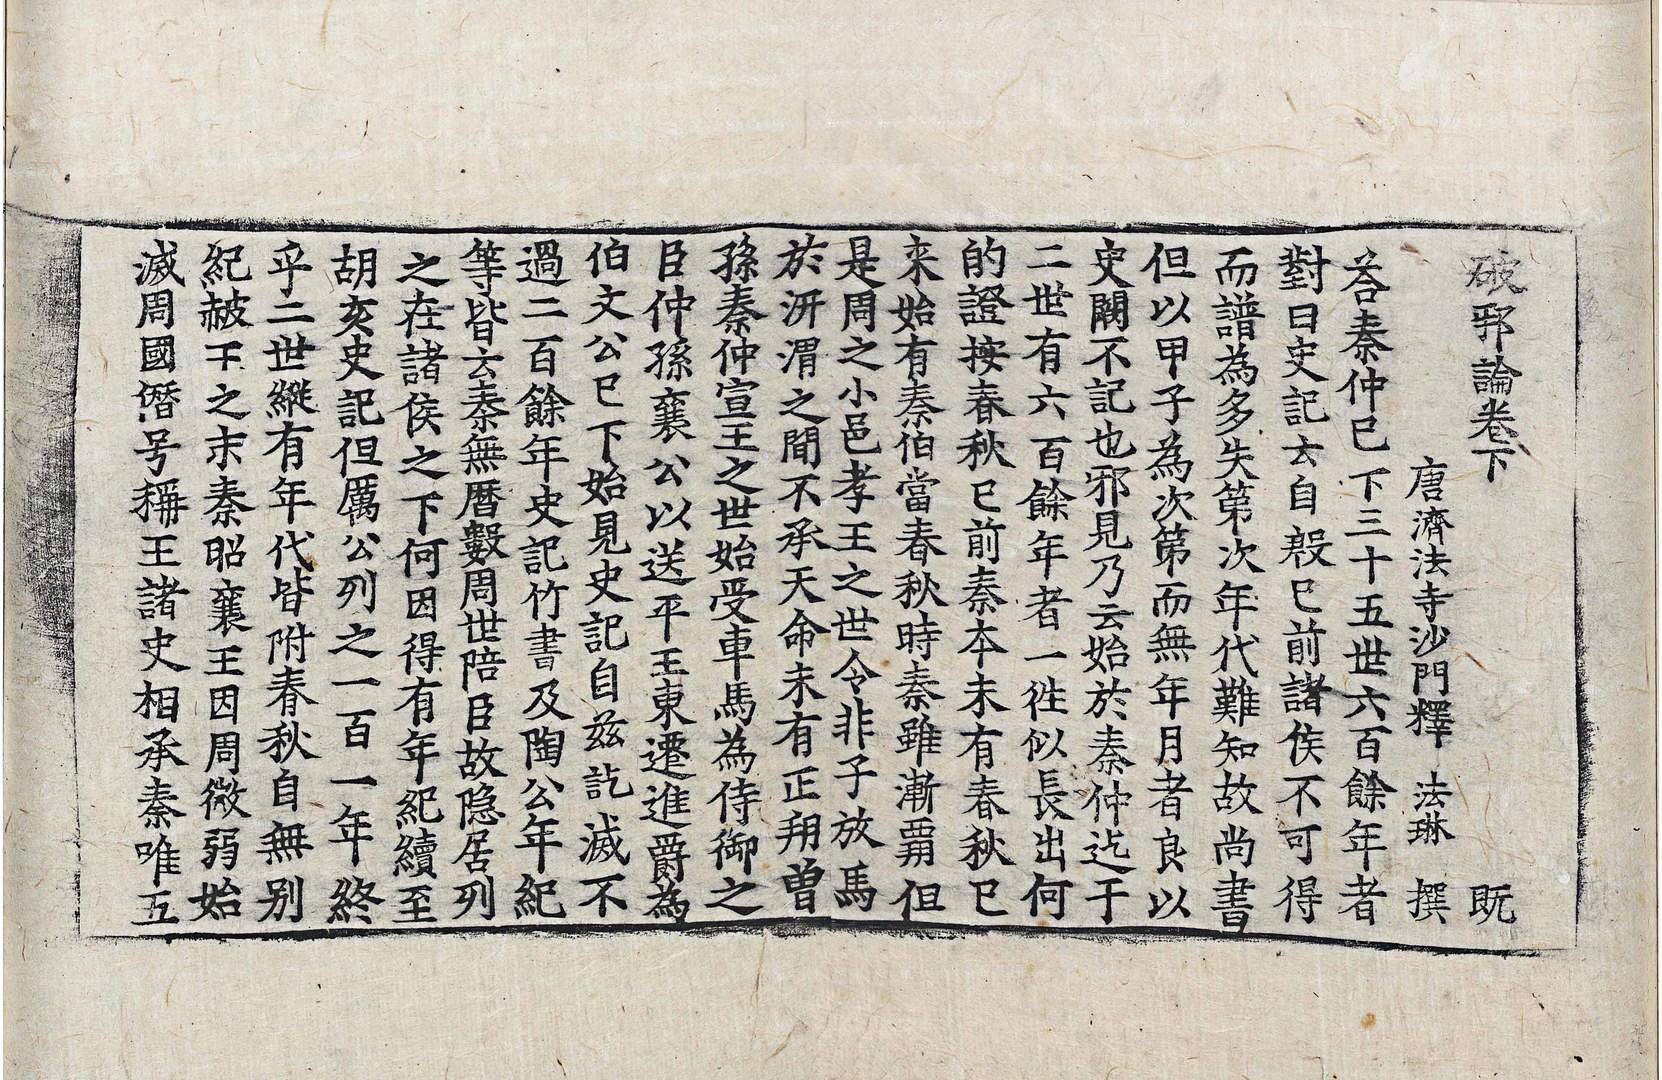 破邪論卷下 既
唐濟法寺沙門釋 法琳 撰
荅秦仲已下三十五世六百餘年者
對曰史記云自殷已前諸侯不可得
而譜為多失第次年代難知故尚書
但以甲子為次第而無年月者良以
史闕不記也邪見乃云始於秦仲迄于
二世有六百餘年者一徃似長出何
的證按春秋已前秦本未有春秋已
来始有秦伯當春秋時秦雖漸覇但
是周之小邑孝王之世令非子放馬
於汧渭之間不承天命未有正朔曽
孫秦仲宣王之世始受車馬為侍御之
臣仲孫襄公以送平王東遷進爵為
伯文公已下始見史記自兹訖滅不
過二百餘年史記竹書及陶公年紀
等皆云秦無曆數周世陪臣故隐居列
之在諸侯之下何因得有年紀續至
胡亥史記但厲公列之一百一年終
乎二世縱有年代皆附春秋自無別
紀赧王之末秦昭襄王因周微弱始
滅周國僭号稱王諸史相承秦唯五